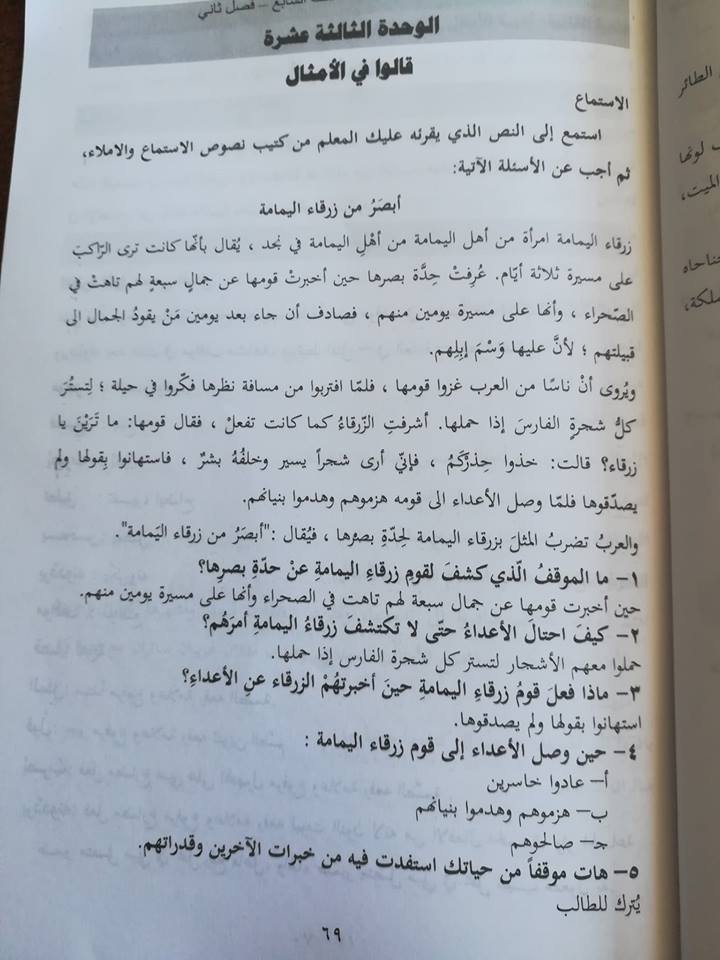 السابع – فصل ثاني
الوحدة الثالثة عشرة
قالوا في الأمثال
الاستماع
استمع إلى النص الذي يقرئه عليك المعلم من كتيب نصوص الاستماع والاملاء،
ثم أجب عن الأسئلة الآتية:
أبصَرُ من زرقاء اليمامة
زرقاء اليمامة امرأة من أهل اليمامة من أهْلِ اليمامة في نجد ، يُقال بأنّها كانت ترى الرّاكبَ
على مسيرة ثلاثة أيّام. عُرِفتْ حِدَّة بصرها حين أخبرتْ قومها عن جمالٍ سبعةٍ لهم تاهتْ في
الصّحراء ، وأنها على مسيرة يومين منهم ، فصادف أن جاء بعد يومين مَنْ يقودُ الجمال الى
قبيلتهم ؛ لأنَّ عليها وَسْمَ إبِلِهم.
ويُروى أنْ ناسًا من العرب غزوا قومها ، فلمّا اقتربوا من مسافة نظرها فكّروا في حيلة ؛ لِتستُرَ
كلُّ شجرةٍ الفارسَ إذا حملها. أشرفتِ الزّرقاءُ كما كانت تفعلْ ، فقال قومها: ما تَرَيْنَ يا
زرقاء؟ قالت: خذوا حِذرَكُمُ ، فإنّي أرى شجراً يسير وخلفُهُ بشرٌ ، فاستهانوا بِقولها ولم
يصدّقوها فلمّا وصل الأعداء الى قومه هزموهم وهدموا بنيانهم.
والعربُ تضربُ المثلَ بزرقاء اليمامة لِحِدّةِ بصرُها ، فيُقال :"أبصَرُ من زرقاء اليَمامة".
١– ما الموقفُ الّذي كشفَ لقومِ زرقاءِ اليمامةِ عنْ حدّةِ بصرِها؟
حين أخبرت قومها عن جمال سبعة لهم تاهت في الصحراء وأنها على مسيرة يومين منهم.
٢– كيفَ احتالَ الأعداءُ حتّى لا تكتشفَ زرقاءُ اليمامةِ أمرَهُم؟
حملوا معهم الأشجار لتستر كل شجرة الفارس إذا حملها.
٣– ماذا فعلَ قومُ زرقاءِ اليمامةِ حينَ أخبرتهُمْ الزرقاء عنِ الأعداءِ؟
استهانوا بقولها ولم يصدقوها.
٤– حين وصل الأعداء إلى قوم زرقاء اليمامة :
أ– عادوا خاسرين
ب– هزموهم وهدموا بنيانهم
جـ– صالحوهم
٥– هات موقفاً من حياتك استفدت فيه من خبرات الآخرين وقدراتهم.
يُترك للطالب
٦٩
الطائر
لونها
الميت،
جناحاه